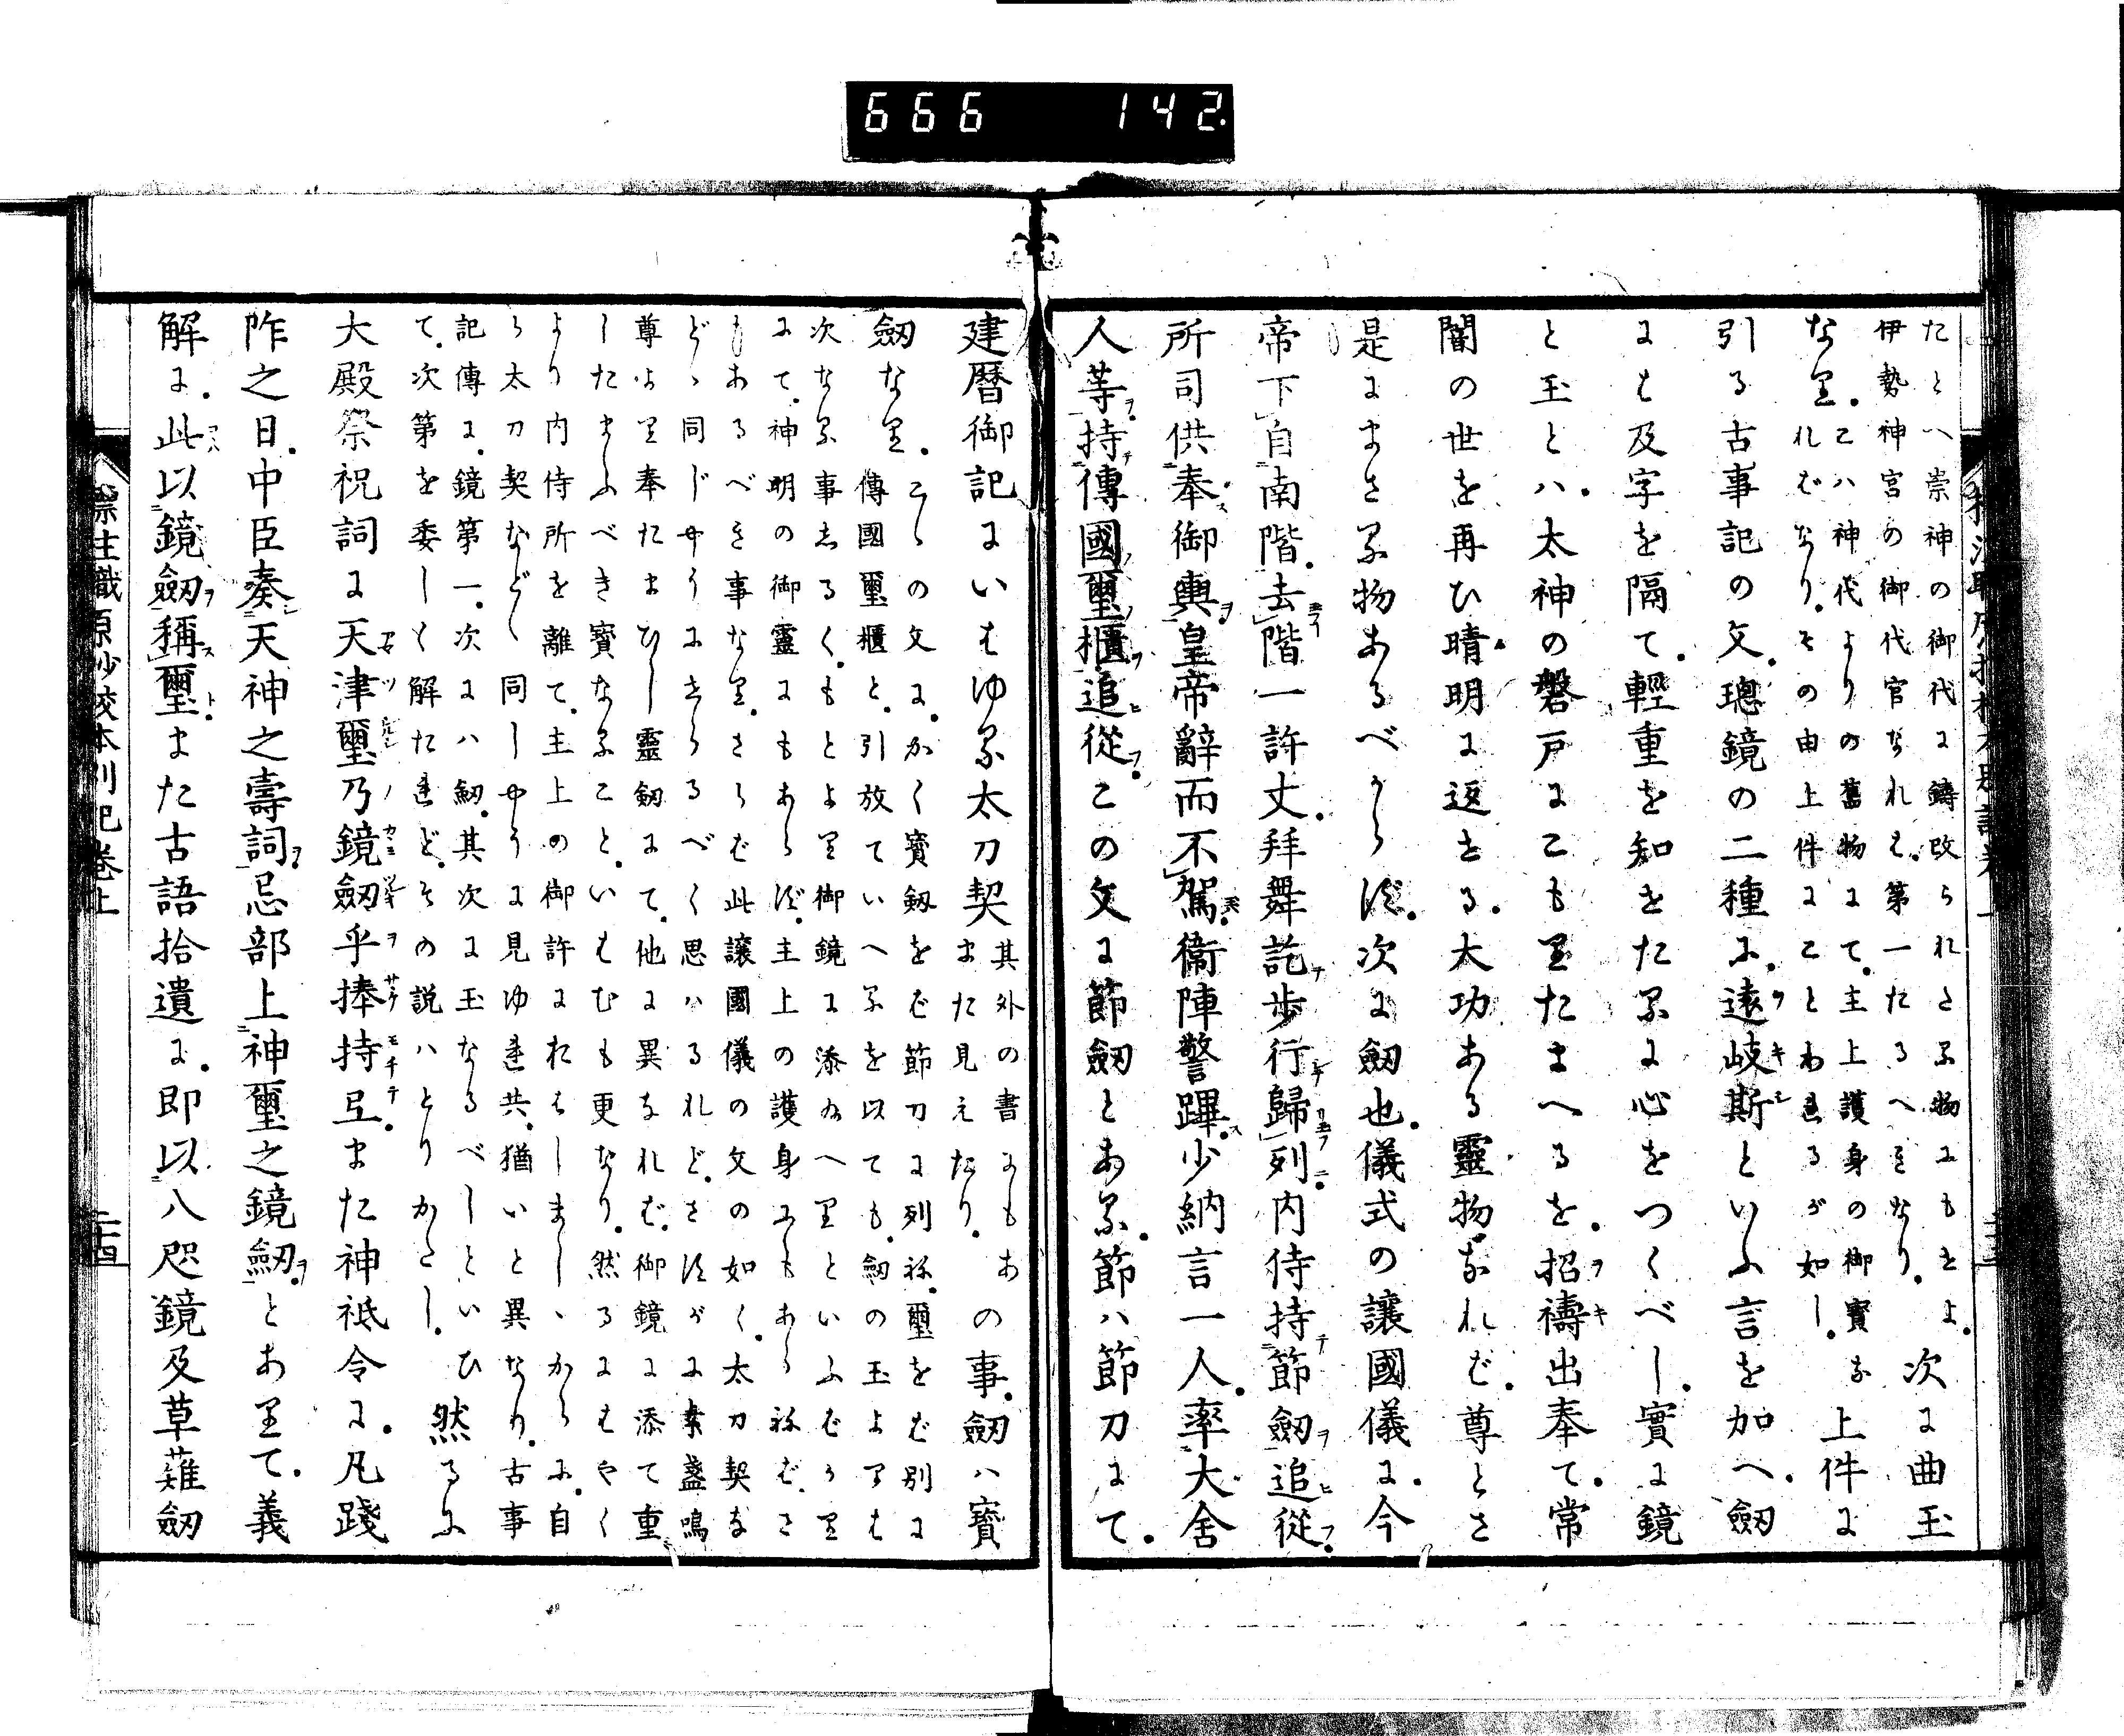 666 142.
たとへ崇神の御代に鑄改られたる物にもせよ。次に曲玉
伊勢神宮の御代官なれば。第一たるべきなり。
なり。こハ神代よりの舊物にて。主上護身の御寳な
ればなり。その由上件にことわれるが如し。上件に
引る古事記の文。璁鏡の二種に。遠岐斯といふ言を加へ。劔
には及字を隔て。輕重を知せたるに心をつくべし。實に鏡
と玉とハ。太神の磐戸にこもりたまへるを。招禱出奉て。常
闇の世を再ひ晴明に返せる。太功ある靈物なれば。尊とさ
是にまさる物あるべからず。次に劔也。儀式の讓國儀に。今
帝下自南階。去階一許丈。拜舞訖歩行歸列。内侍持節劔追從。
所司供奉御輿。皇帝辭而不駕。衞陣警蹕。少納言一人。率大舍
人等。持傳國璽櫃追從。この文に節劔とある。節ハ節刀にて。
建暦御記にいはゆる太刀契其外の書にもあ
また見えたり。の事。劔ハ寳
劔なり。こゝの文に。かく寳劔をば節刀に列ね。璽をば別に
傳國璽櫃と。引放ていへるを以ても。劔の玉よりは
次なる事しるく。もとより御鏡に添為へりといふばかり
にて。神明の御靈にもあらず。主上の護身にもあらねば。さ
もあるべき事なり。さらば此讓國儀の文の如く。太刀契な
どゝ同じやうにきらるべく思ハるれど。さすがに素盞嗚
尊より奉たまひし靈劔にて。他に異なれば。御鏡に添て重
したまふべき寳なること。いはむも更なり。然るにはやく
より内侍所を離て。主上の御許におはしましゝからに。自
ら太刀契などゝ同しやうに見ゆれ共。猶いと異なり。古事
記傳に。鏡第一。次にハ劔。其次に玉なるべしといひ
て。次第を委しく解たれど。その説ハとりかたし。然るに
大殿祭祝詞に天津璽乃鏡劔乎捧持弖。また神祇令に。凡踐
阼之日。中臣奏天神之壽詞。忌部上神璽之鏡劔。とありて。義
解に。此以鏡劔稱璽。また古語拾遺に。即以八咫鏡及草薙劔
標注職原抄校本別記卷上
二十四